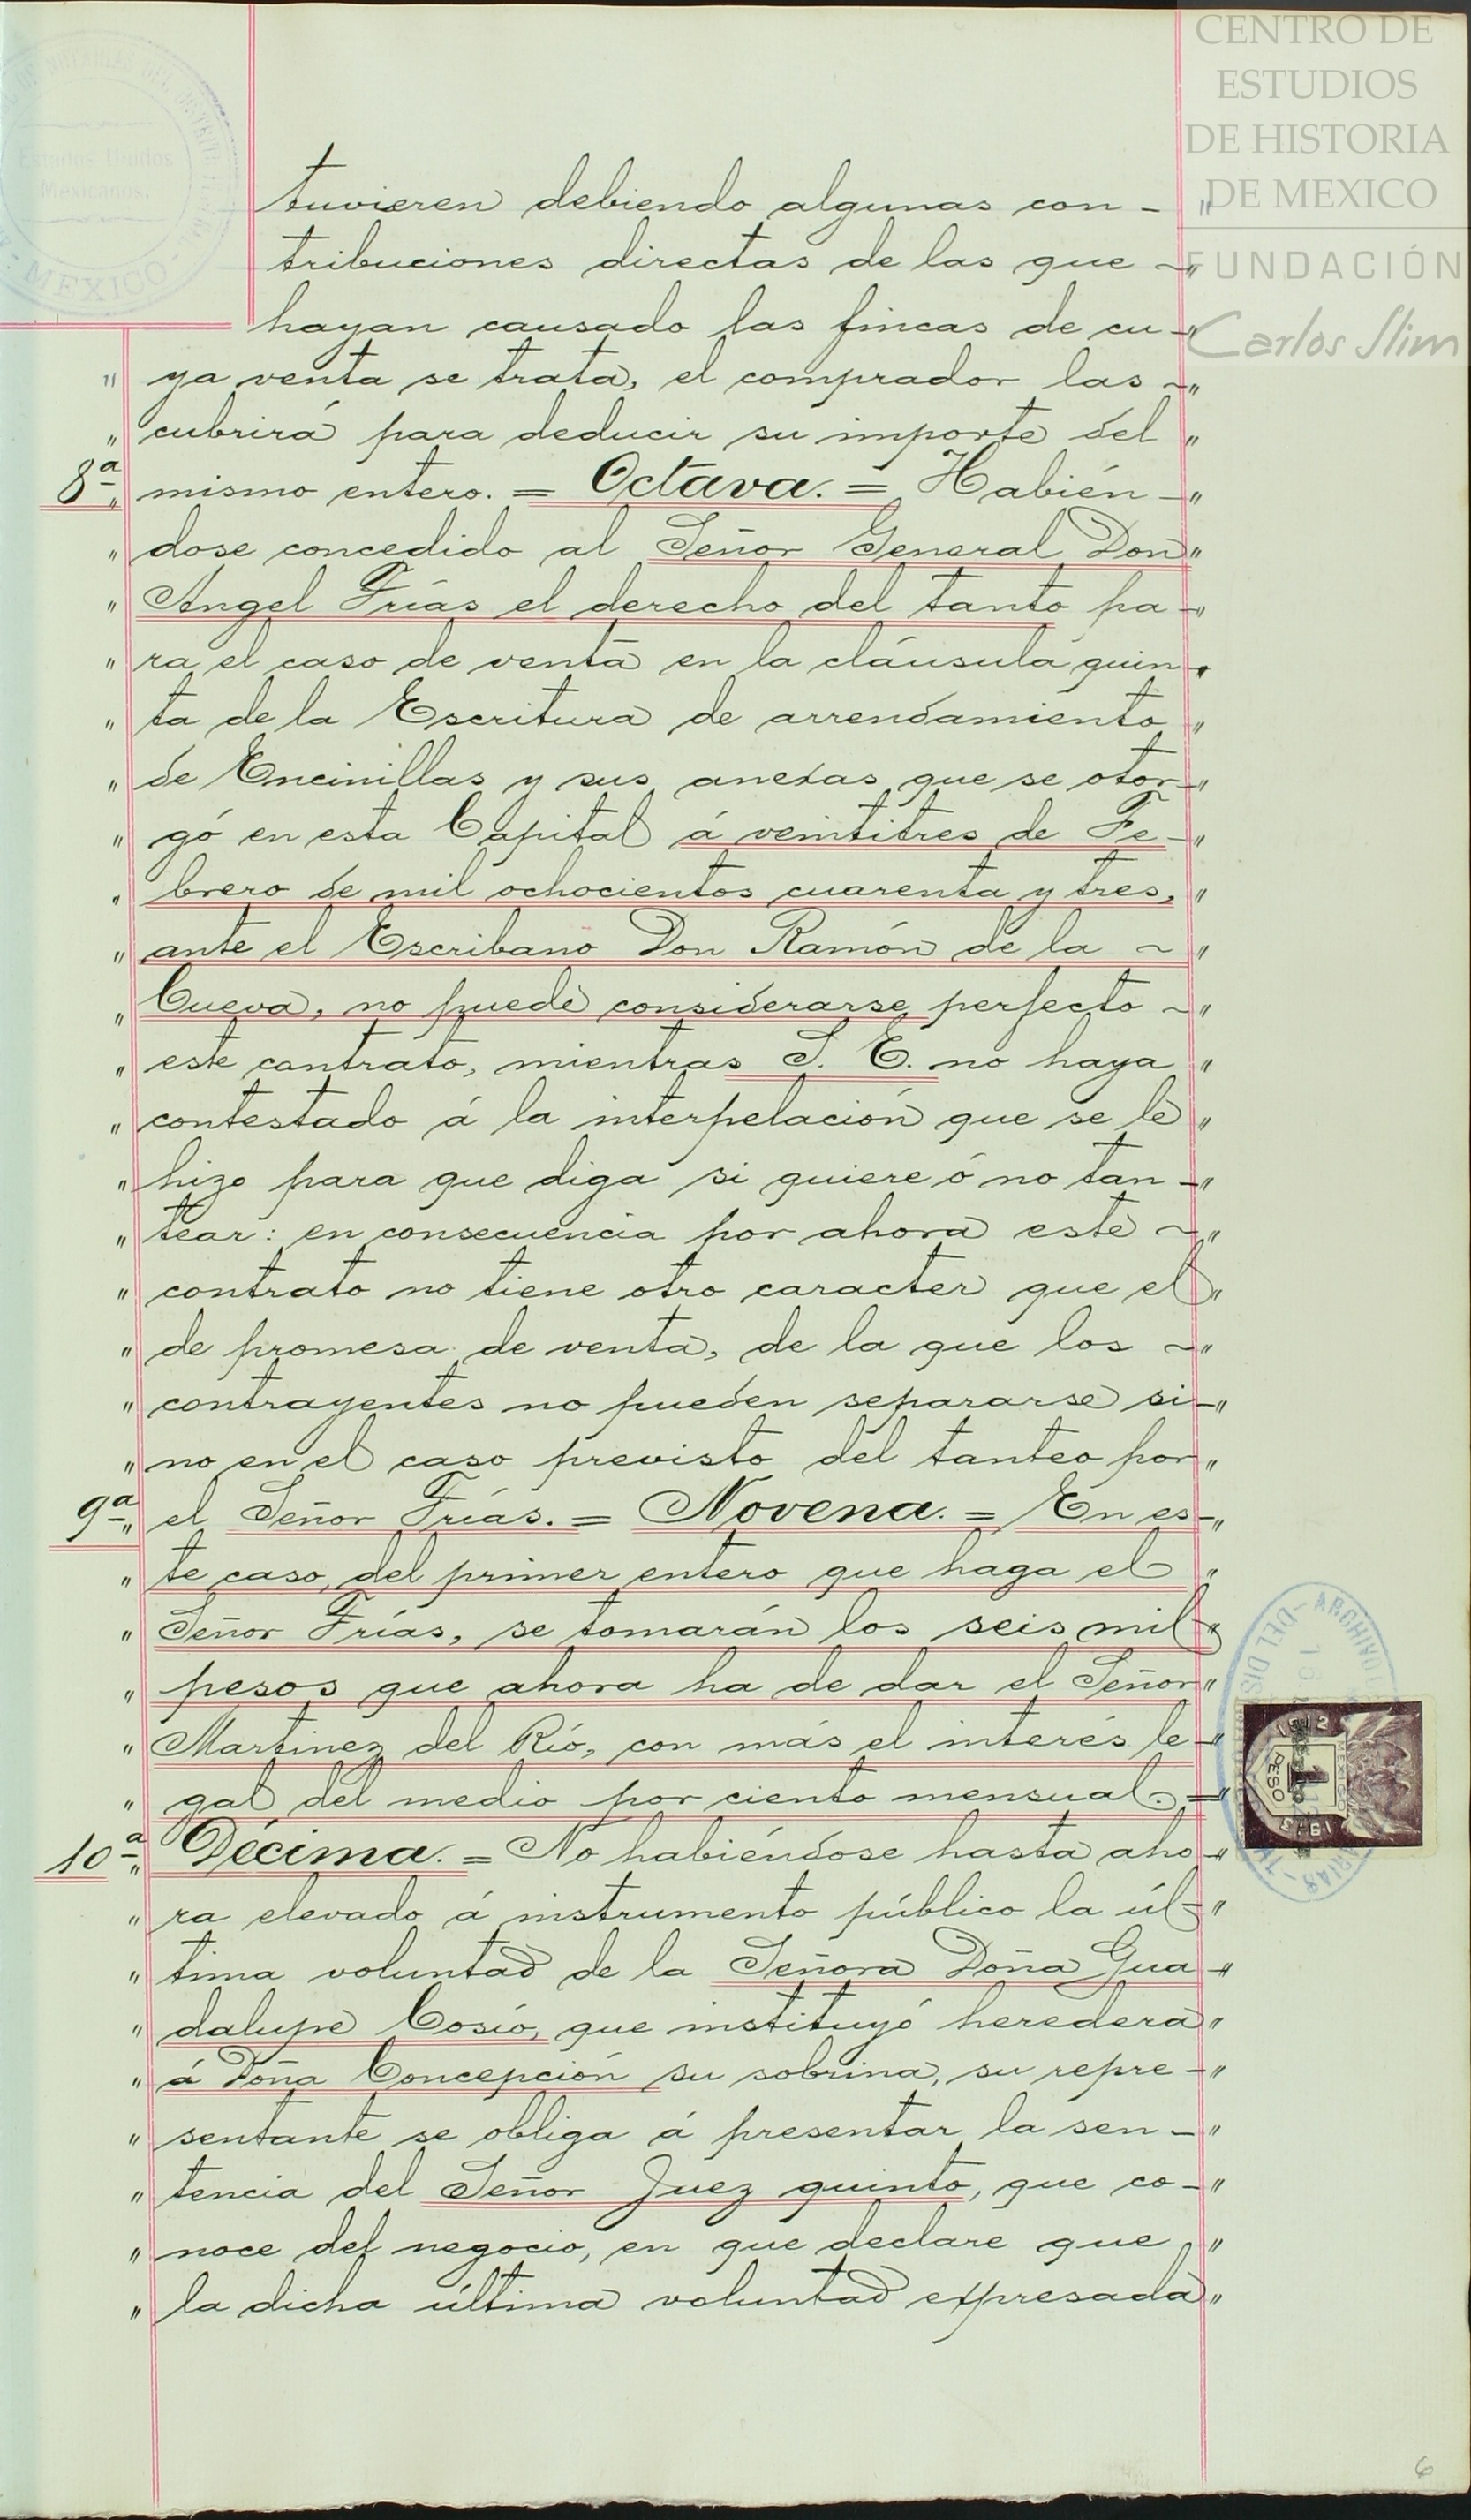 CENTRO DE
ESTUDIOS
DE HISTORIA
DE MEXICO
FUNDACIÓN
Carlos Slim
Estados Unidos
Mexicanos.
MEXICO
tuvieren debiendo algunas con- "
tribuciones directas de las que ~ "
hayan causado las fincas de cu- "
" ya venta se trata, el comprador las ~ "
" cubrirá para deducir su importe del "
8ª " mismo entero. = Octava. = Habién- "
" dose concedido al Señor General Don "
" Angel Frías el derecho del tanto pa- "
" ra el caso de venta en la cláusula quin- "
" ta de la Escritura de arrendamiento "
" de Encinillas y sus anexas que se otor- "
" gó en esta Capital á veintitres de Fe- "
" brero de mil ochocientos cuarenta y tres, "
" ante el Escribano Don Ramón de la ~ "
" Cueva, no puede considerarse perfecto ~ "
" este contrato, mientras S. E. no haya "
" contestado á la interpelación que se le "
" hizo para que diga si quiere ó no tan- "
" tear: en consecuencia por ahora este ~ "
" contrato no tiene otro caracter que el "
" de promesa de venta, de la que los ~ "
" contrayentes no pueden separarse si- "
" no en el caso previsto del tanteo por "
9ª " el Señor Frías. = Novena. = En es- "
" te caso, del primer entero que haga el "
" Señor Frías, se tomarán los seis mil "
" pesos que ahora ha de dar el Señor "
" Martinez del Río, con más el interés le- "
" gal del medio por ciento mensual. = "
10ª " Décima. = No habiéndose hasta aho- "
" ra elevado á instrumento público la úl- "
" tima voluntad de la Señora Doña Gua- "
" dalupe Cosío, que instituyó heredera "
" á Doña Concepción su sobrina, su repre- "
" sentante se obliga á presentar la sen- "
" tencia del Señor Juez quinto, que co- "
" noce del negocio, en que declare que "
" la dicha última voluntad expresada "
1912
1
PESO
1913
6